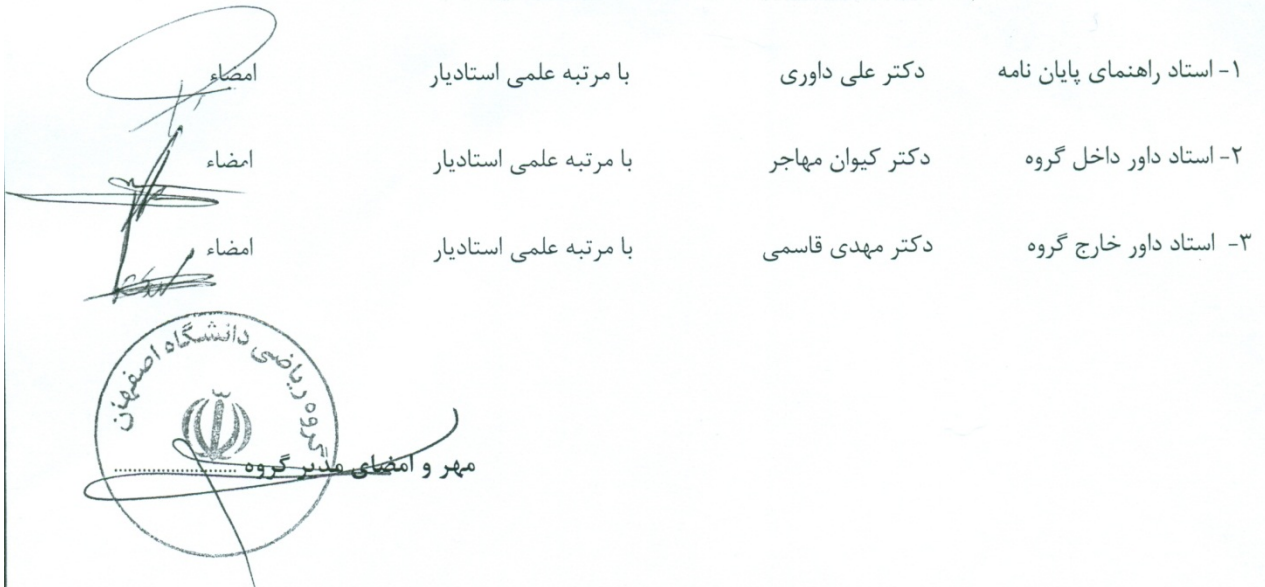 ۱- استاد راهنمای پایان نامه دکتر علی داوری با مرتبه علمی استادیار امضاء
۲- استاد داور داخل گروه دکتر کیوان مهاجر با مرتبه علمی استادیار امضاء
۳- استاد داور خارج گروه دکتر مهدی قاسمی با مرتبه علمی استادیار امضاء
گروه ریاضی دانشگاه اصفهان
مهر و امضای مدیر گروه ........................